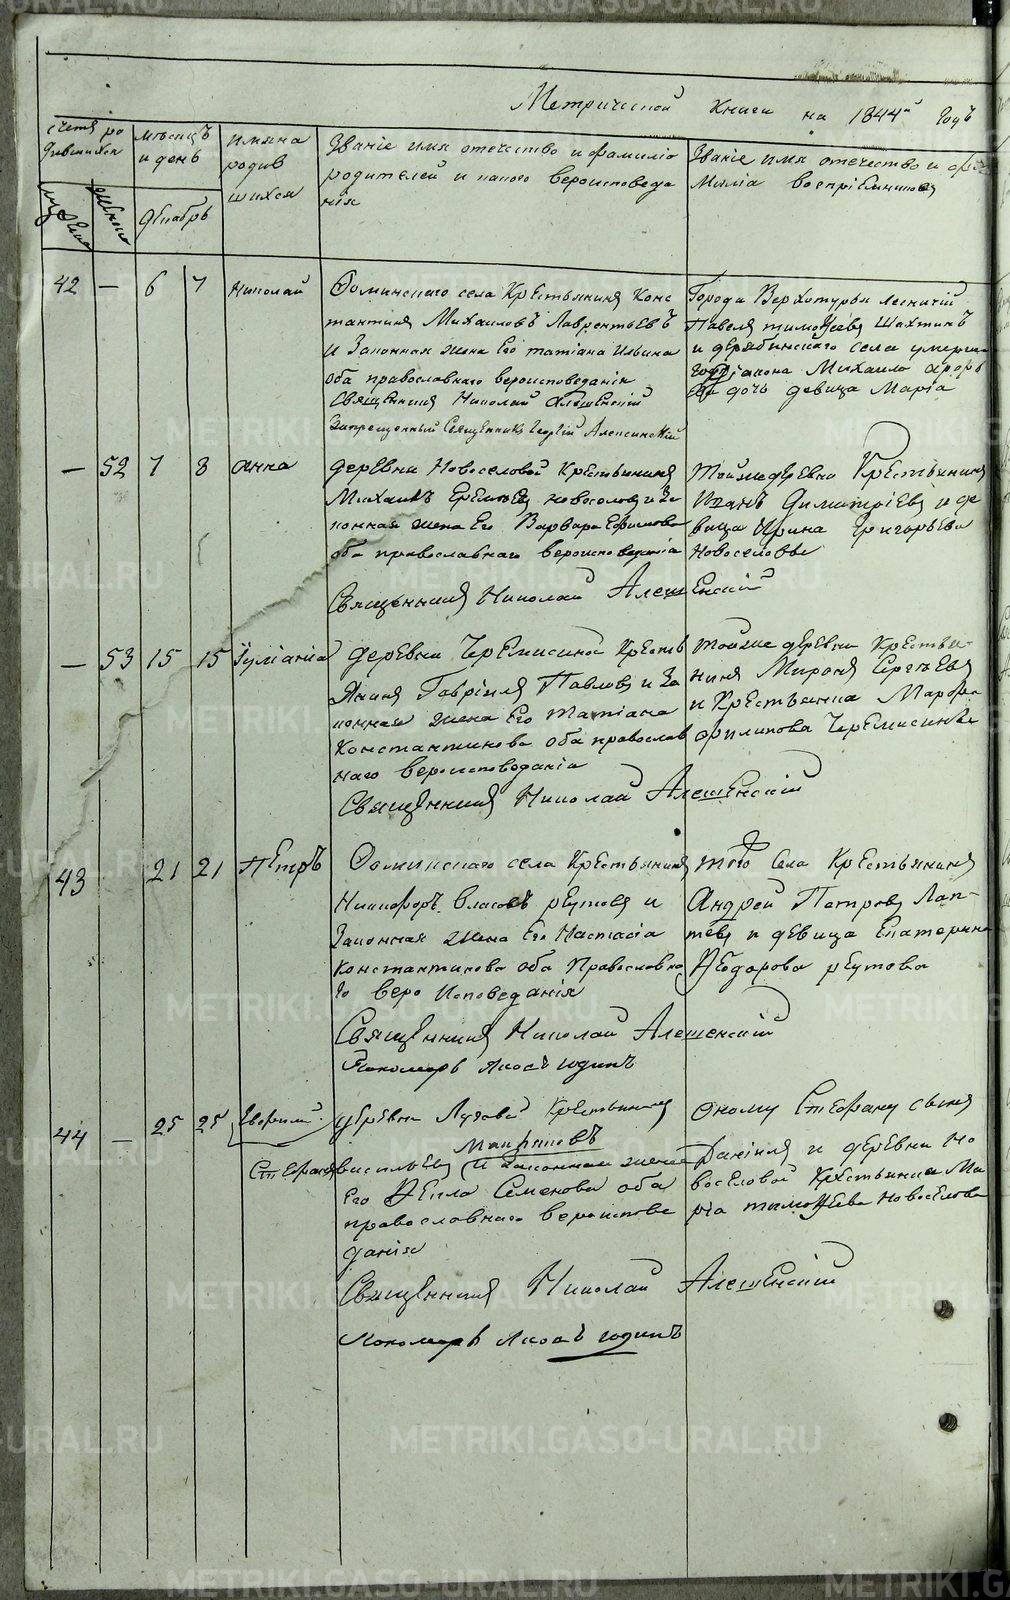 Метрической Книги на 1844й Годъ
счетъ ро
дившихся
мужеска
женска
мѣсяцъ
и день
Декабрь
имяна
родив
шихся
Званіе имя отечество и фамилію
родителей и какого вероисповеда
нія
Званіе имя отечество и фа
милія воспріемниковъ
42 — 6 7 Николай
Фоминскаго села Крестьянинъ Конс
тантинъ Михаиловъ Лаврентьевъ
и Законная жена Его татіана Ильина
оба православнаго вероисповеданія
Священникъ Николай Алешенскій
Запрещенный Священникъ Георгій Алексинскій
Города Верхотурья лесничій
Павелъ тимоѳеевъ Шахтинъ
и дерябинскаго села умершаго
діакона Михаила
дочь девица Марія
— 52 7 8 анна
деревни Новоселовой Крестьянинъ
Михаилъ Еремѣевъ новоселовъ и За
конная жена Его Варвара Ефимова
оба православнаго вероисповеданія
Священникъ Николай Алешенскій
тойже деревни Крестьянинъ
Иванъ Димитріевъ и де
вица Ирина Григорьева
Новоселовы
— 53 15 15 Іуліанія
деревни Черемисиной Кресть
янинъ Гавріилъ Павловъ и За
конная жена Его Татіана
Константинова оба православ
наго вероисповеданія
Священникъ Николай Алешенскій
тойже деревни Крестья-
нинъ Миронъ Сергѣевъ
и Крестьянка Марфа
филипова Черемисины
43 — 21 21 Петръ
Фоминскаго села Крестьянинъ
Никифоръ Власовъ реутовъ и
Законная Жена Его Настасія
Константинова оба Православна
го веро Исповеданія
Священникъ Николай Алешенскій
Пономарь Іаковъ
того Села Крестьянинъ
Андрей Петровъ Лап-
тевъ и девица Екатерина
Ѳедорова реутова
44 — 25 25
Стефанъ
деревни Луговой Крестьянинъ
васильевъ и Законная жена
Его Ѳекла Семенова оба
православнаго вероиспове
данія
Священникъ Николай Алешенскій
Пономарь Іаковъ
оному Стефану сынъ
Даніилъ и деревни Но
воселовой Крестьянка Ма
рія тимоѳеева новоселова
METRIKI.GASO-URAL.RU